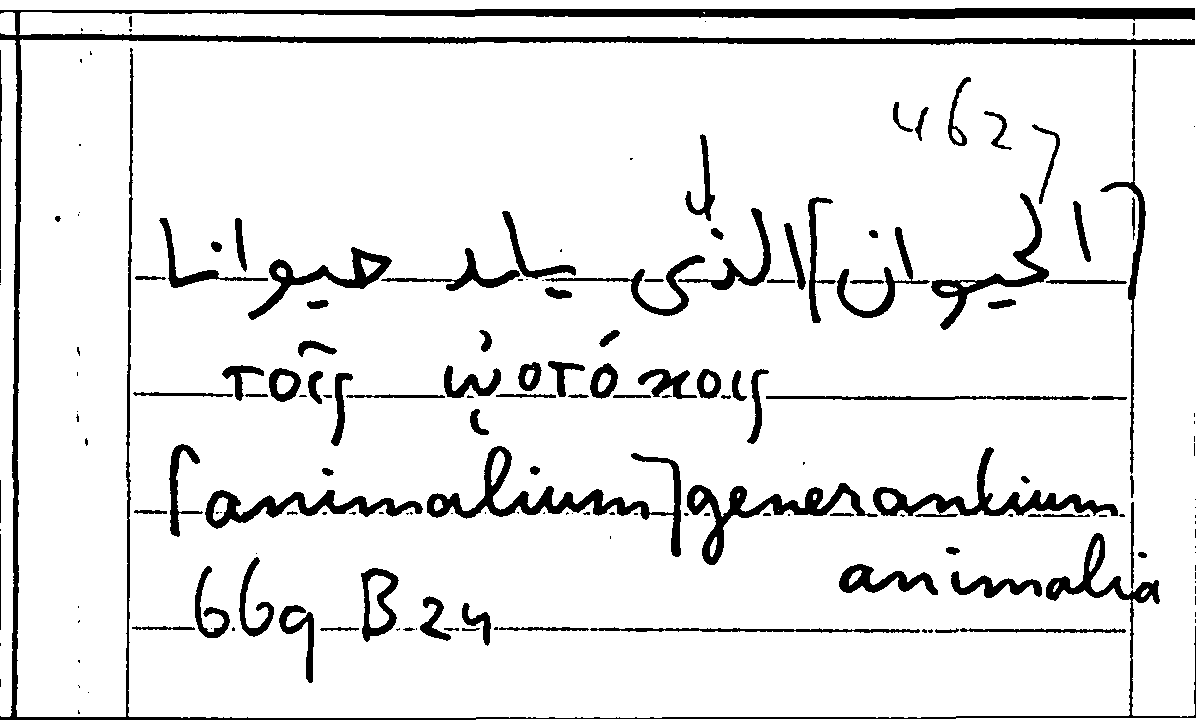 4627
[الحيوان] الذى يلد حيوانا
τοῖς ᾠοτόκοις
[animalium] generantium
animalia
669 B24